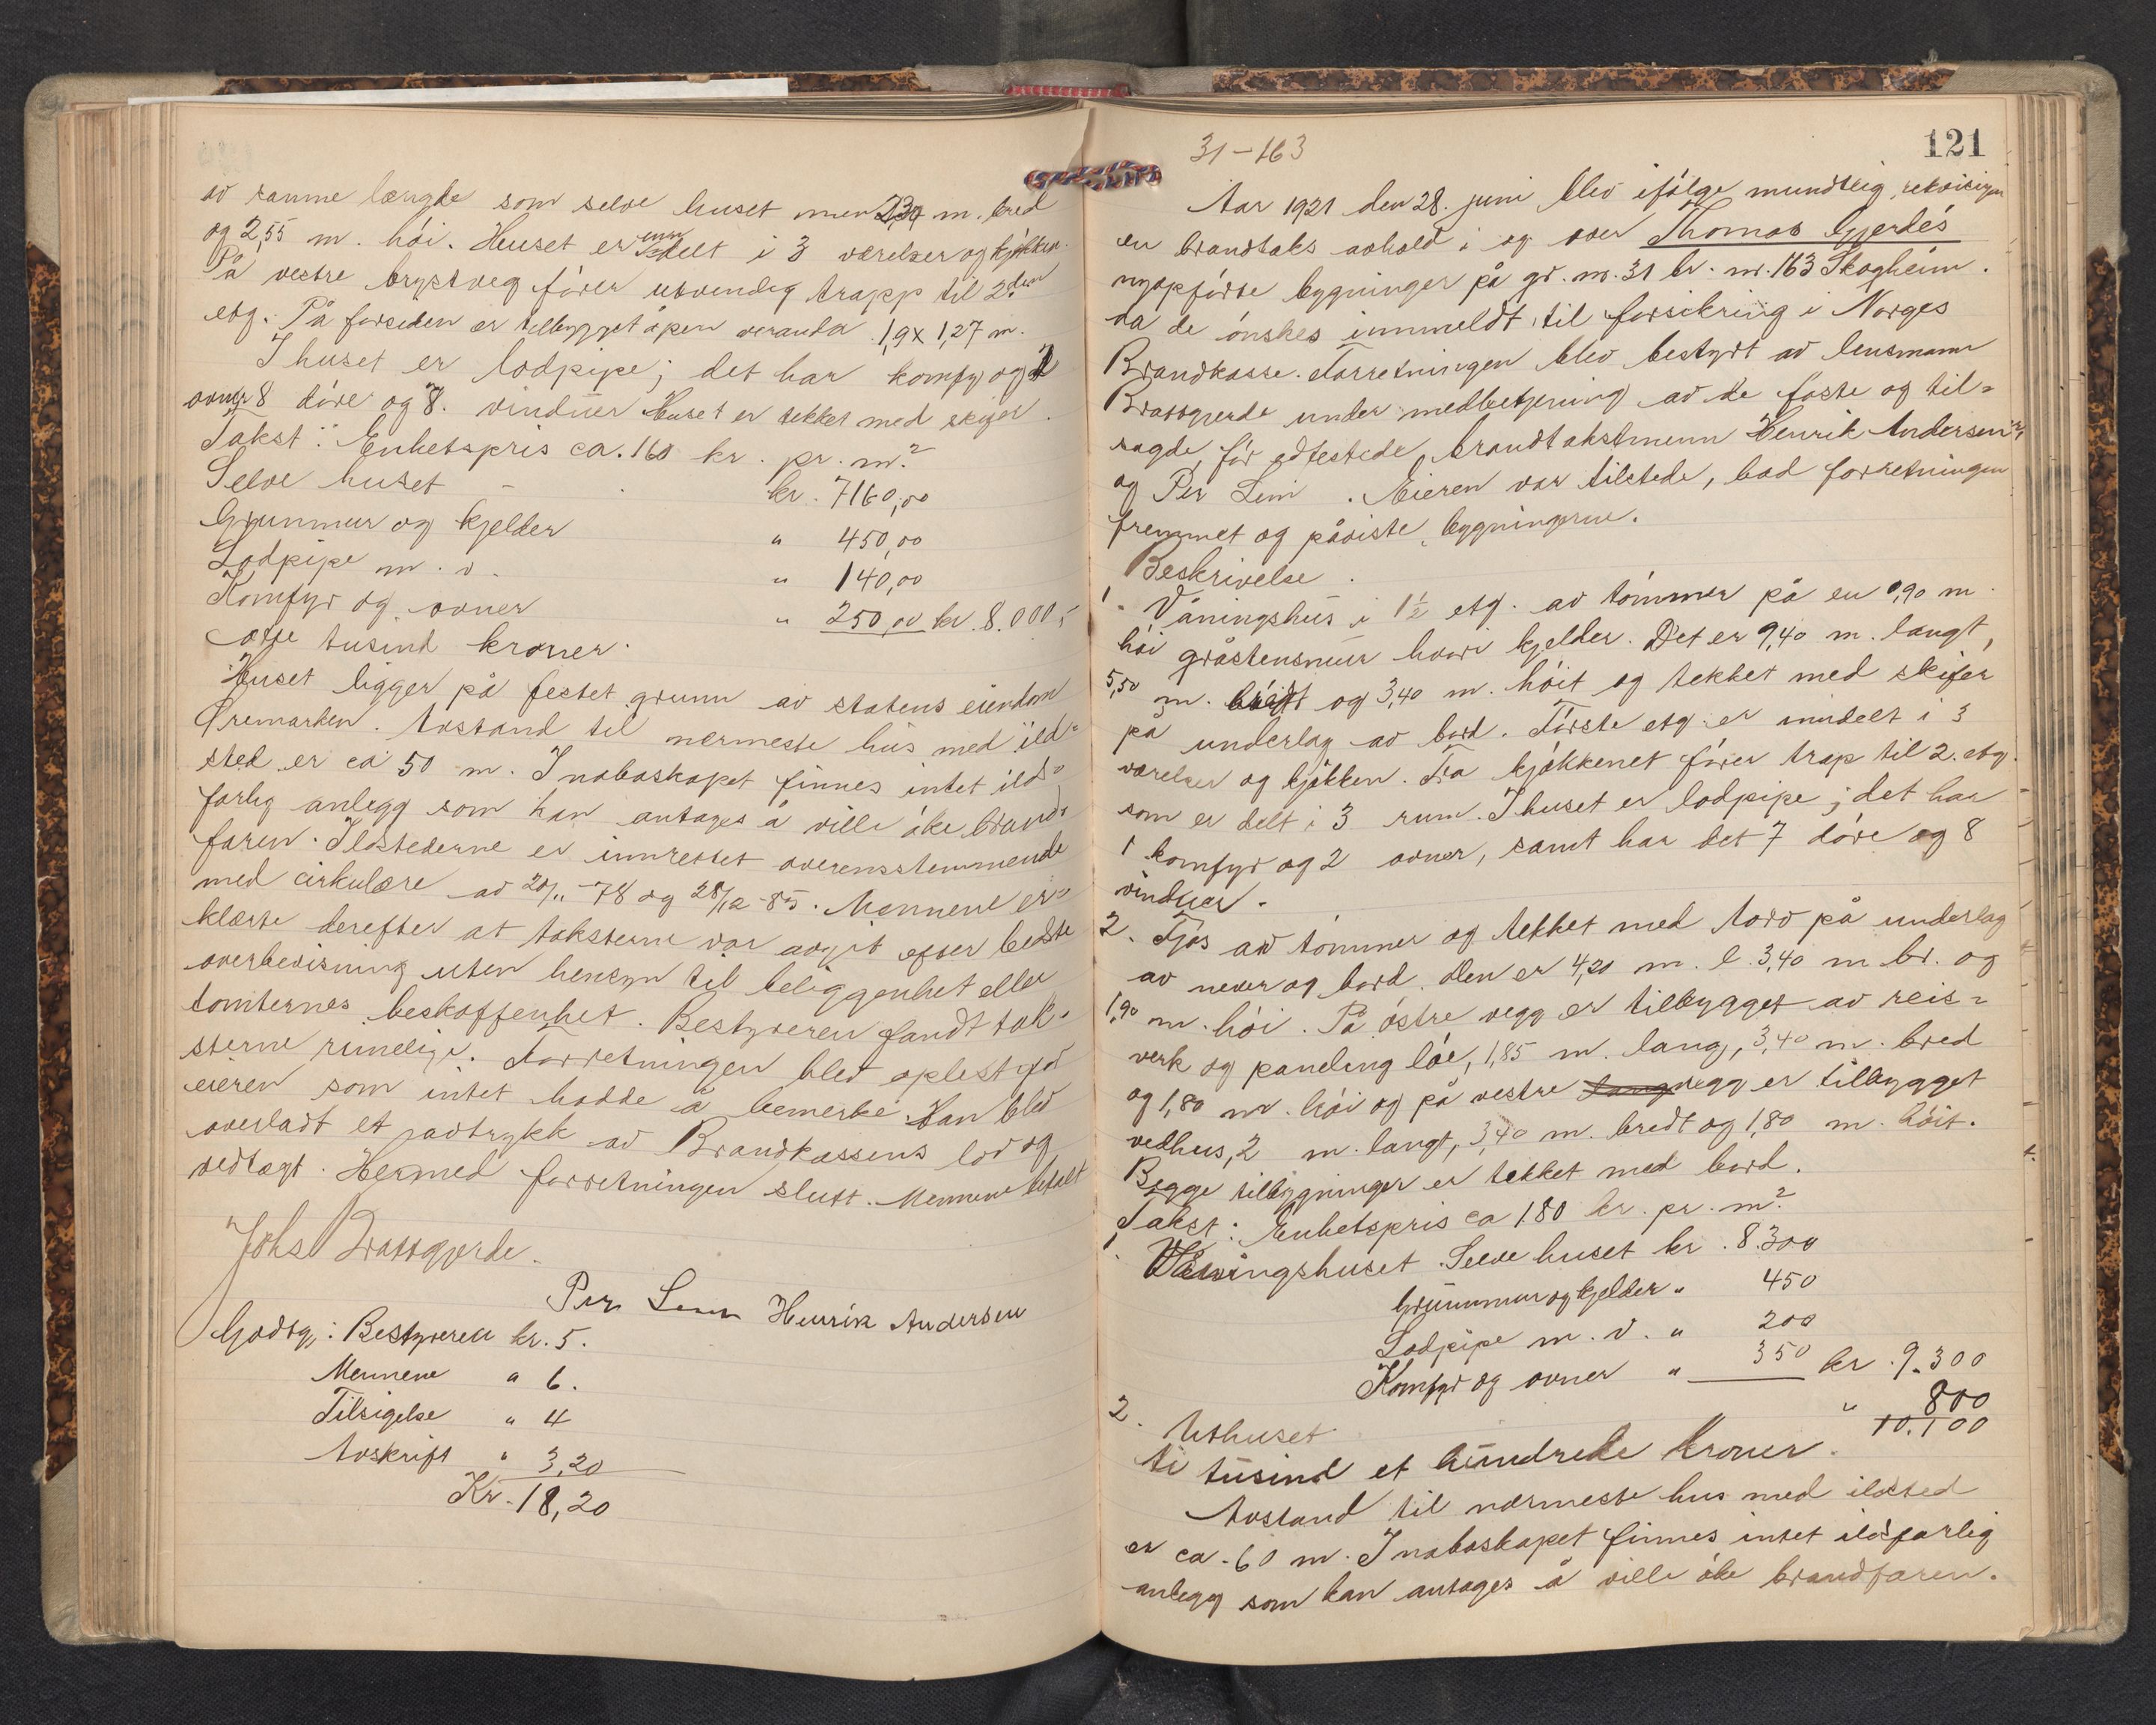 av samme længde som selve huset men 2,34 m. bred
og 2,55 m. hói. Huset er inndelt i 3 værelser og kjókken.
På vestre brystveg fórer utvendig trapp til 2den
etg. På forsiden er tilbygget åpen veranda 1,9 x 1,27 m.
I huset er lodpipe; det har komfyr og 2
ovner 8 dóre og 8. vinduer Huset er tekket med skifer.
Takst: Enhetspris ca. 160 kr. pr. m.²
Selve huset - kr. 7160,00
Grunnmur og kjelder " 450,00
Lodpipe m. v. " 140,00
Komfyr og ovner " 250,00 kr. 8.000,-
otte tusind kroner.
Huset ligger på festet grunn av statens eiendom
Øremarken. Avstand til nærmeste hus med ild-
sted er ca 50 m. I naboskapet finnes intet ilds-
farlig anlegg som kan antages å ville óke brand-
faren. Ildstederne er innrettet overensstemmende
med cirkulære av 20/11-78 og 28/12-85. Mennene er-
klærte derefter at taksterne var avgit efter bedste
overbevisning uten hensyn til beliggenhet eller
tomternes beskaffenhet. Bestyreren fandt tak-
sterne rimelige. Forretningen blev oplest for
eieren som intet hadde å bemerke. Han blev
overladt et avtrykk av Brandkassens lov og
vedtægt. Hermed forretningen slutt. Mennene betalt
Johs Drabsgjerde.
Per Lem Henrik Andersen
Godtg.: Bestyreren kr. 5.
Mennene " 6.
Tilsigelse " 4
Avskrift " 3,20
Kr. 18,20
31-163
121
Aar 1921 den 28. juni blev ifólge mundtlig rekvisisjon
en brandtakst avhold i og over Thomas Gjerdés
nyopfórte bygninger på gr. nr. 31 br. nr. 163 Skogheim.
da de ónskes innmeldt til forsikring i Norges
Brandkasse. Forretningen blev bestyrt av lensmann
Drabsgjerde under medbetjening av de faste og til-
sagde, fór edfestede brandtakstmenn Henrik Andersen
og Per Lem. Eieren var tilstede, bad forretningen
fremmet og påviste bygningerne.
Beskrivelse.
1. Våningshus i 1½ etg. av tómmer på en 0,90 m.
hói gråstensmur hvori kjelder. Det er 9,40 m. langt,
5,50 m. bredt og 3,40 m. hóit og tekket med skifer
på underlag av bord. Fórste etg. er inndelt i 3
værelser og kjókken. Fra kjókkenet fórer trap til 2. etg.
som er delt i 3 rum. I huset er lodpipe; det har
1 komfyr og 2 ovner, samt har det 7 dóre og 8
vinduer.
2. Fjós av tómmer og tekket med torv på underlag
av never og bord. Den er 4,20 m. l. 3,40 m br. og
1,90 m. hói. På óstre vegg er tilbygget av reis-
verk og paneling lóe, 1,85 m. lang, 3,40 m. bred
og 1,80 m. hói og på vestre langvegg er tilbygget
vedhus, 2 m. langt, 3,40 m. bredt og 1,80 m. hóit.
Begge tilbygninger er tekket med bord.
Takst: Enhetspris ca 180 kr. pr. m.²
1. Våningshuset. Selve huset kr. 8.300
Grunnmur og kjelder " 450
Lodpipe m. v. " 200
Komfyr og ovner " 350 kr. 9.300
2. Uthuset " 800
10.100
ti tusind et hundrede kroner.
Avstand til nærmeste hus med ildsted
er ca. 60 m. I naboskapet finnes intet ildsfarlig
anlegg som kan antages å ville óke brandfaren.